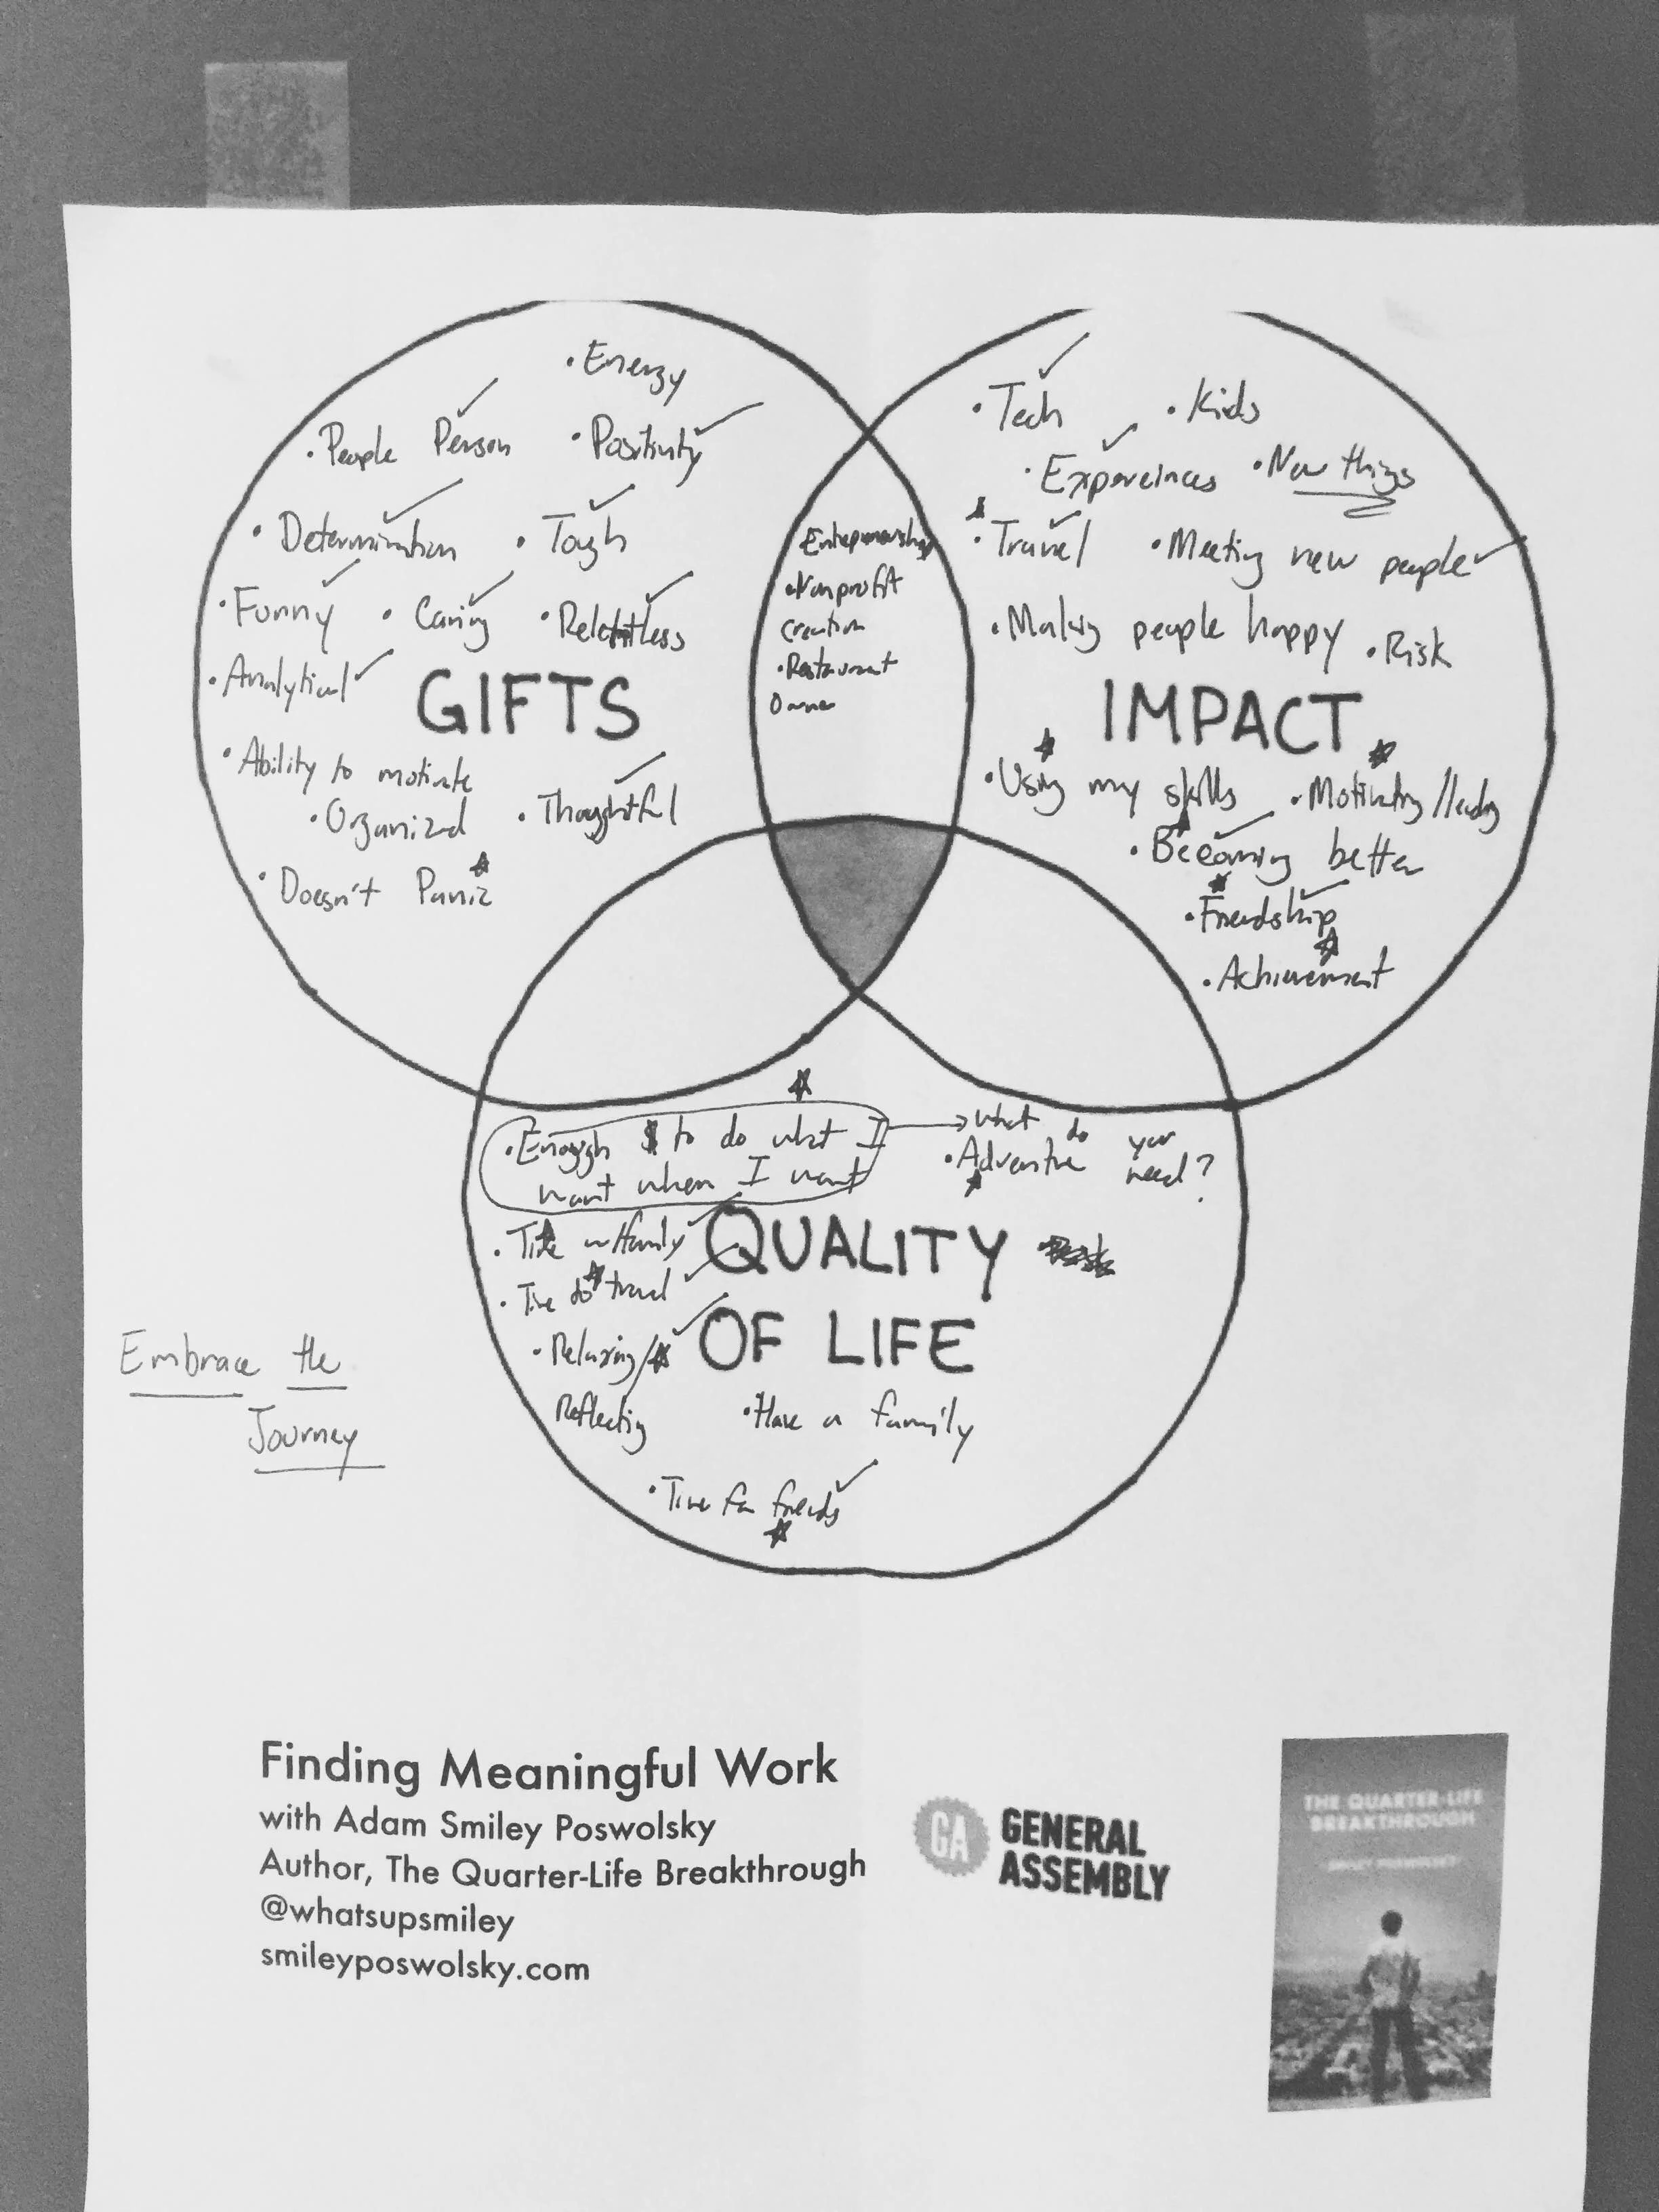 • Energy
• People Person
• Positivity
• Determination
• Tough
• Funny
• Caring
• Relentless
• Analytical
GIFTS
• Ability to motivate
• Organized
• Thoughtful
• Doesn't Panic
Entrepreneurship
• Nonprofit
Creation
• Restaurant
Owner
• Tech
• Kids
• Expereinces
• New things
• Travel
• Meeting new people
• Making people happy
• Risk
IMPACT
• Using my skills
• Motivating/leading
• Becoming better
• Friendship
• Achievement
• Enough $ to do what I
want when I want
what do you
need?
• Adventure
• Time w/family
• Time to travel
QUALITY
OF LIFE
• Relaxing/
Reflecting
• Have a family
• Time for friends
Embrace the
Journey
Finding Meaningful Work
with Adam Smiley Poswolsky
Author, The Quarter-Life Breakthrough
@whatsupsmiley
smileyposwolsky.com
GA
GENERAL
ASSEMBLY
THE QUARTER-LIFE
BREAKTHROUGH